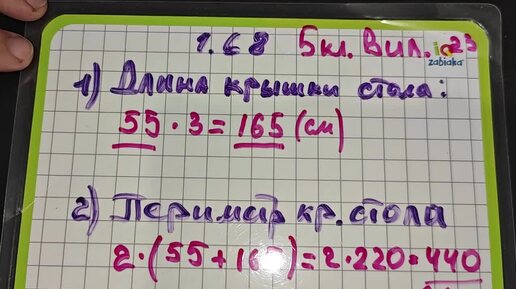 1.68 5кл. Вил. 23
zabiaka
1) Длина крышки стола:
55 · 3 = 165 (см)
2) Перимар кр. стола
2 · (55 + 165) = 2 · 220 = 440